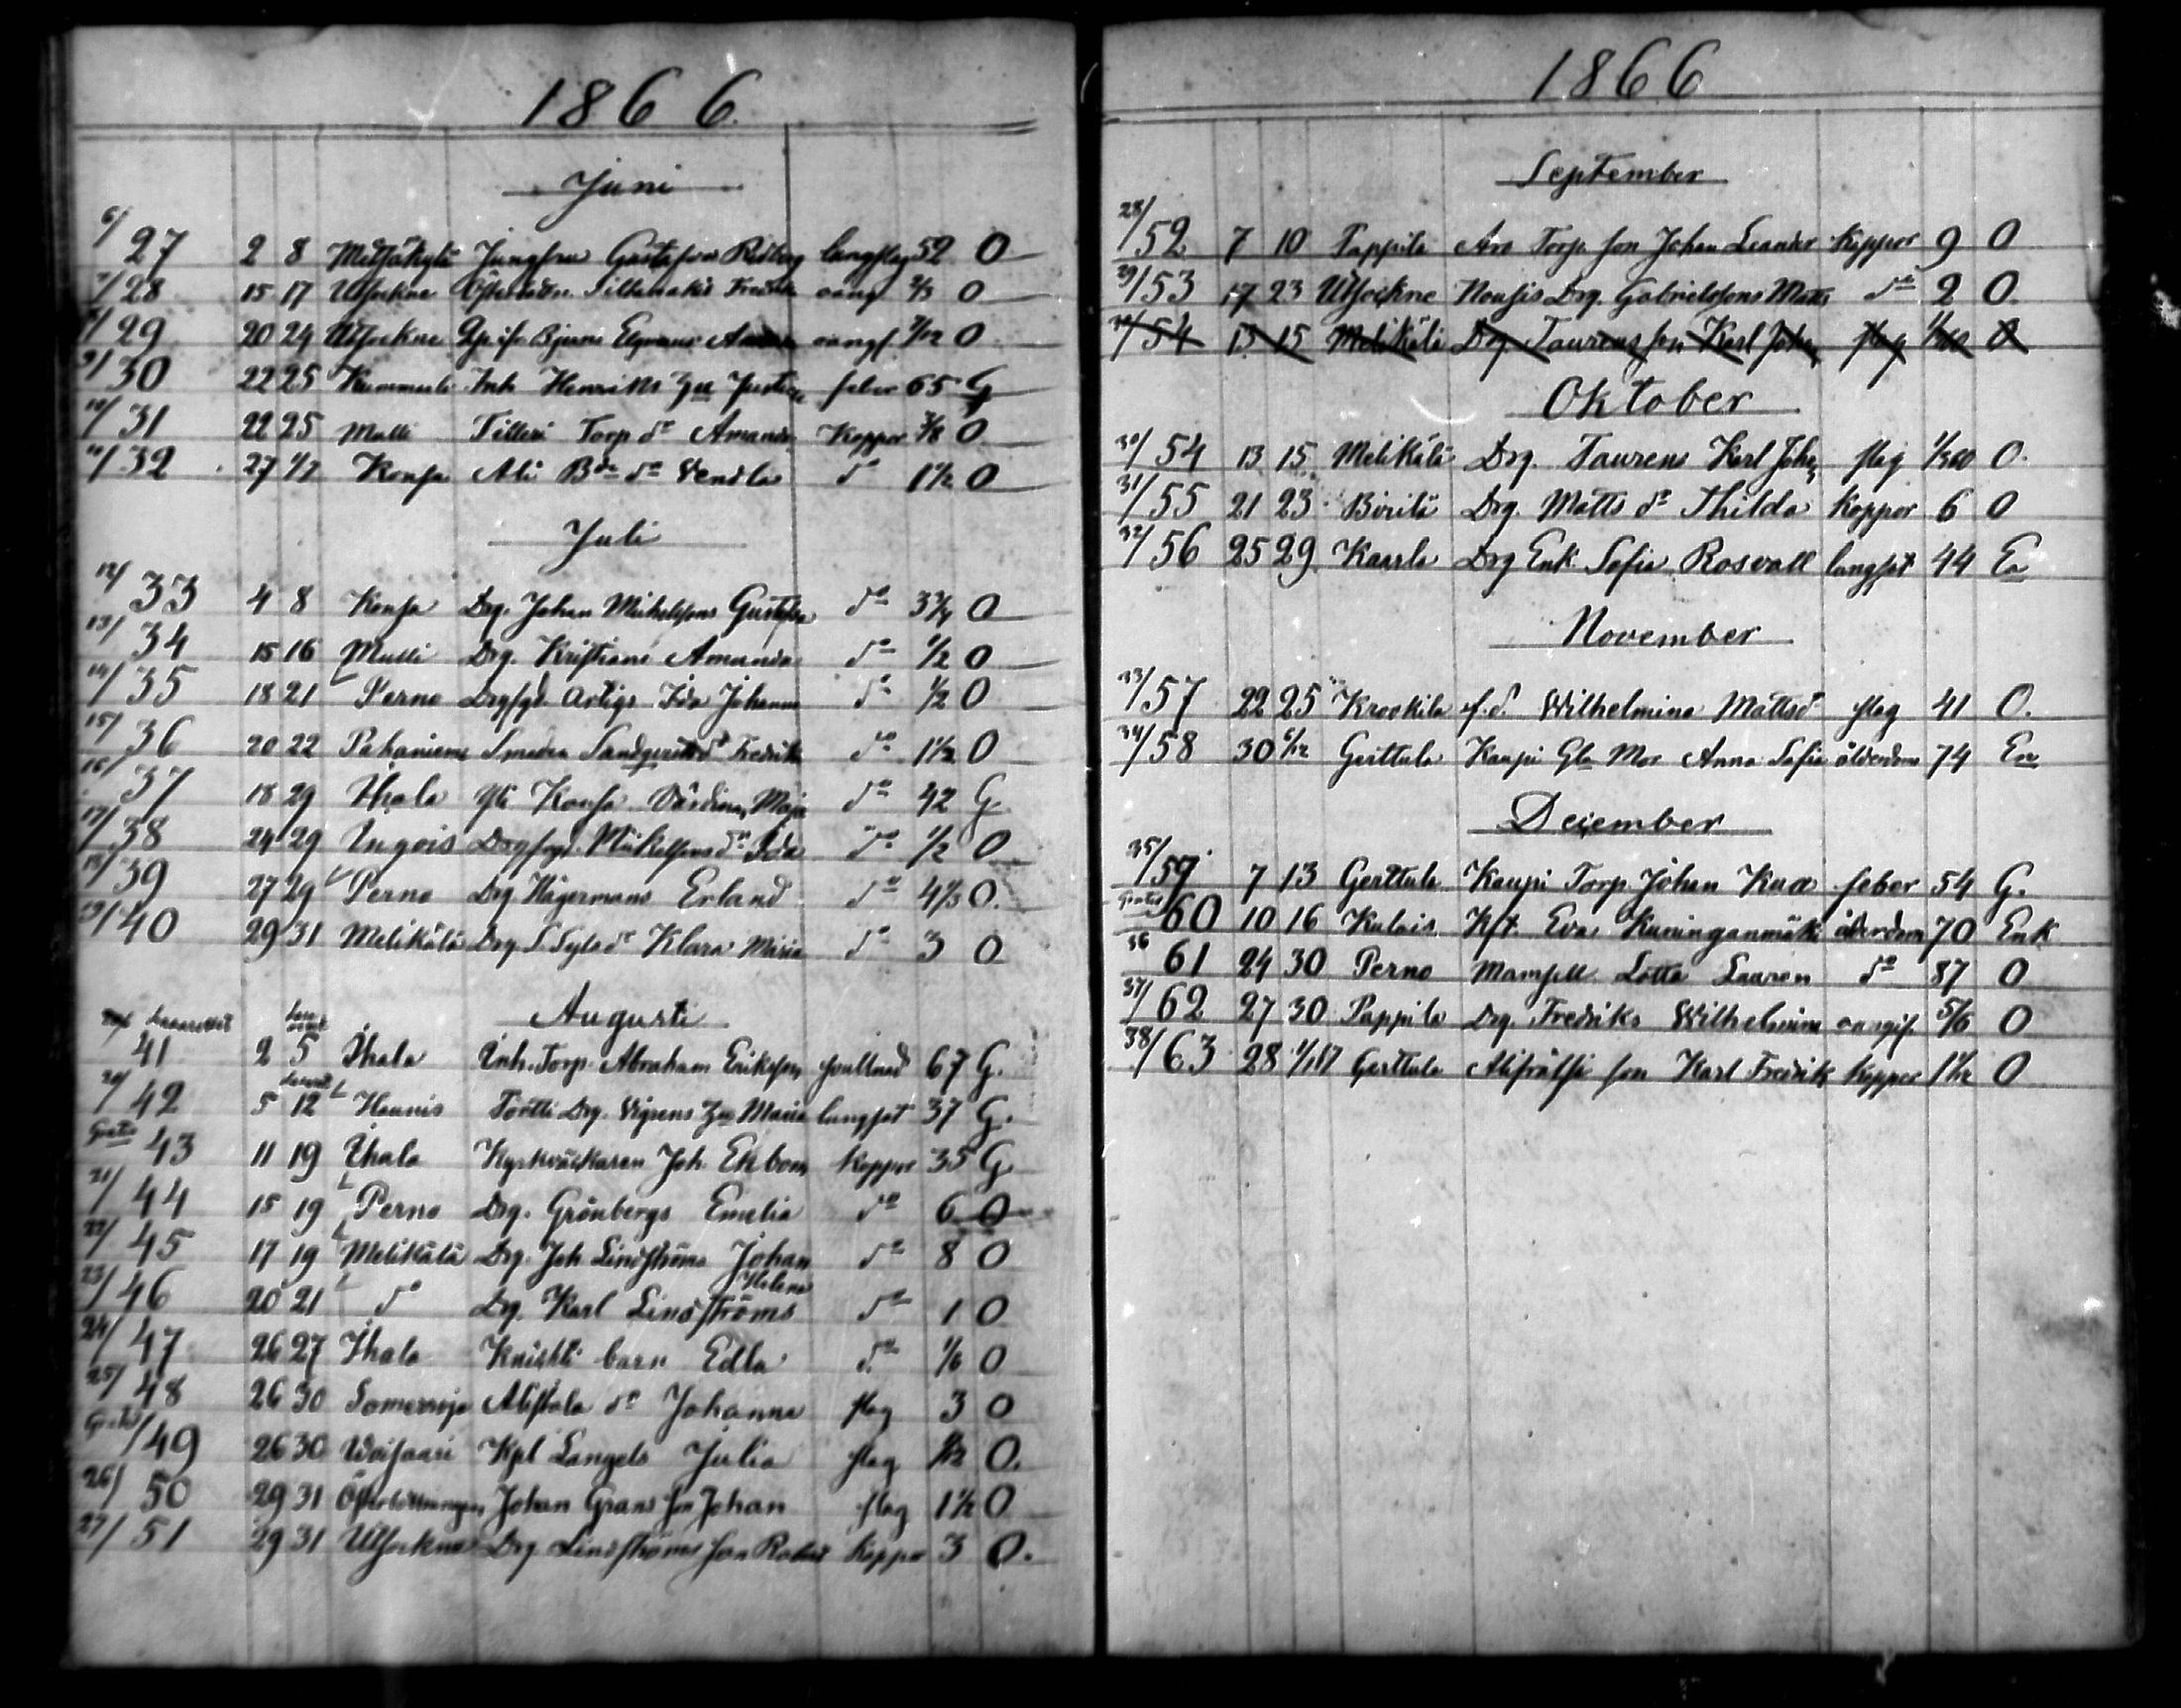 1866.
Juni
6/27 2 8 Metsäkylä Jungfru Gustafava Redberg langsteg 52 O
7/28 15 17 Utsockne Fredrik oang 2/3 O
29 20 24 Utsockne oangf 7/12 O
9/30 22 25 Kummeli Inh Henriks Justina feber 65 G
10/31 22 25 Mulli Tilleri Torp dr Amanda Koppor 3/8 O
11/32 27 1/7 Konsa Ali Bde dr Vendla do 1 1/2 O
Juli
12/33 4 8 Konsa Drg. Johan Mickelssons Gustafva do 3 3/4 O
13/34 15 16 Mulli Drg. Kristians Amanda do 1/2 O
14/35 18 21 Perno Artigs Ida Johanna do 1/2 O
15/36 20 22 Pahaniemi Smeden Sandqvists dr Fredrika do 1 1/2 O
16/37 18 29 Ihala Yli Konsa Värdinn. Maja do 42 G
17/38 24 29 Ungois Mickelssons dr Ida do 1/2 O
18/39 27 29 Perno Drg Hägermans Erland do 4 2/3 O.
19/40 29 31 Melikälä Drg Klara Maria do 3 O
Augusti
Lazarettet
41 2 5 Ihala Inh. Torp. Abraham Eriksson svullnad 67 G.
20/42 5 12 Haunis Töötti Drg. Vigrens Maria langsot 37 G.
Gratis 43 11 19 Ihala Kyrkväktaren Joh. Ekbom Koppor 35 G
21/44 15 19 Perno Drg. Grönbergs Emelia do 6 O
22/45 17 19 Melikälä Drg. Joh Lindströms Johan do 8 O
23/46 20 21 do Drg. Karl Lindströms Helena do 1 O
24/47 26 27 Ihala Knihti barn Edla do 1/6 O
25/48 26 30 Somersoja Alistalo dr Johanna slag 3 O
Gratis/49 26 30 Woisaari Kpl Langels Julia slag O.
26/50 29 31 Johan Grans son Johan slag 1 1/2 O
27/51 29 31 Utsockne Drg. Lindströms son Robert Koppor 3 O.
1866
September
28/52 7 10 Pappila Aro Torp. son Johan Leander Koppor 9 O
29/53 17 23 Utsockne Nousis Drg. Gabrielssons Matts do 2 O.
30/54 13 15 Melikälä Drg Laurens son Karl Johan slag O
Oktober
30/54 13 15 Melikälä Drg. Laurens Karl Johan slag 1/360 O.
31/55 21 23 Virilä Drg. Matts dr Thilda Koppor 6 O
32/56 25 29 Kaarla Drg Enk Sofia Rosvall langsot 44 En
November
33/57 22 25 Krookila f.d. Wilhelmina Mattsdr slag 41 O.
34/58 30 6/12 Gerttula Kaupi Gla Mor Anna Sofia ålderdom 74 En
December
35/59 7 13 Gerttula Kaupi Torp. Johan feber 54 G.
Gratis 60 10 16 Kulois Eva Kuninganmäki ålderdom 70 Enk
36 61 24 30 Perno Mamsell Lotta Lauren do 87 O
37/62 27 30 Pappila Drg. Fredriks Wilhelmina oangif. 5/6 O
38/63 28 1/1 67 Gerttula Alifrälsi son Karl Fredrik Koppor 1 1/2 O